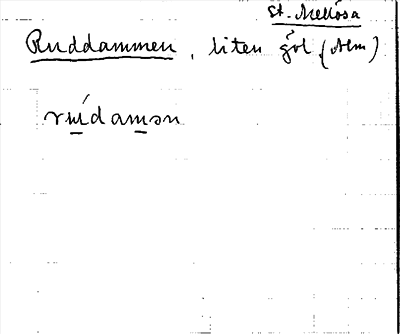 St. Mellösa
Ruddammen, liten göl (Alm)
rúdamən